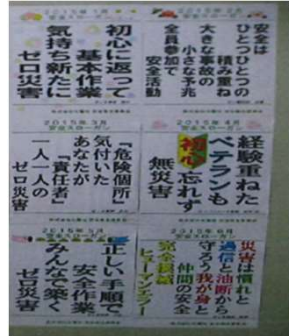 2015年1月
安全スローガン
初心に返って
基本作業
気持ち新たに
ゼロ災害
2015年2月
安全スローガン
安全は
ひとつひとつの
積み重ね
大きな事故の
小さな予兆
全員参加で
安全活動
2015年3月
安全スローガン
『危険個所』
気付いた
あなたが
『責任者』
一人一人の
ゼロ災害
2015年4月
安全スローガン
経験重ねた
ベテランも
初心忘れず
無災害
2015年5月
安全スローガン
正しい手順で
安全作業
みんなで築く
ゼロ災害
2015年6月
安全スローガン
災害は慣れと
過信と油断から
守ろう我が身と
仲間の安全
完全撲滅
ヒューマンエラー